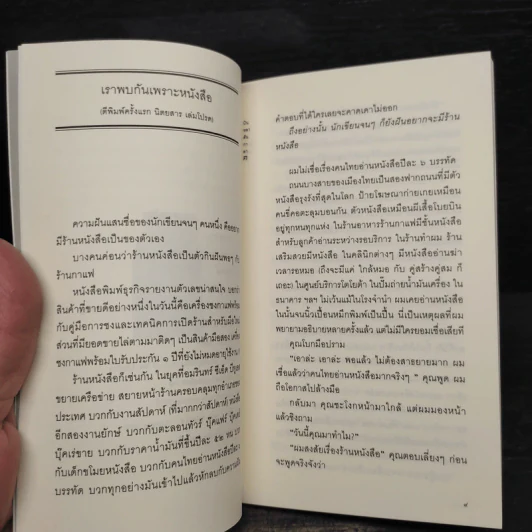 เราพบกันเพราะหนังสือ
(ตีพิมพ์ครั้งแรก นิตยสาร เล่มโปรด)
ความฝันแสนเชื่อของนักเขียนจนๆ คนหนึ่ง คืออยาก
มีร้านหนังสือเป็นของตัวเอง
บางคนค่อนว่าร้านหนังสือเป็นตัวกินฝันพอๆ กับ
ร้านกาแฟ
หนังสือพิมพ์ธุรกิจรายงานตัวเลขน่าสนใจ
สินค้าที่ขายดีอย่างหนึ่งในวันนี้คือเครื่องชงกาแฟ
กับคู่มือการชงและเทคนิคการเปิดร้านสำหรับมือ
ส่วนที่มียอดขายไล่ตามมาติดๆ เป็นสินค้ามือสอง
ชงกาแฟพร้อมใบรับประกัน ๑ ปีที่ยังไม่หมดอายุใช้งาน
ร้านหนังสือก็เช่นกัน ในยุคที่อมรินทร์ ซีเอ็ด
ขยายเครือข่าย สยายหน้าร้านครอบคลุมทุกอำเภอ
ประเทศ บวกกับงานสัปดาห์ (ที่มากกว่าสัปดาห์)
อีกสองงานยักษ์ บวกกับตะลอนทัวร์ บุ๊คแฟร์
บุ๊คเร่ขาย บวกกับราคาน้ำมันที่ขึ้นปีละ ๕๒ หน
กับเด็กขโมยหนังสือ บวกกับคนไทยอ่านหนังสือปีละ
บรรทัด บวกทุกอย่างมันเข้าไปแล้วหักลบกับความ
คำตอบที่ได้ใครเลยจะคาดเดาไม่ออก
ถึงอย่างนั้น นักเขียนจนๆ ก็ยังฝันอยากจะมีร้าน
หนังสือ
ผมไม่เชื่อเรื่องคนไทยอ่านหนังสือปีละ ๖ บรรทัด
ถนนบางสายของเมืองไทยเป็นสองฟากถนนที่มีตัว
หนังสือรุงรังที่สุดในโลก ป้ายโฆษณาก่ายเกยเหมือน
คนขี่คอตะลุมบอนกัน ตัวหนังสือเหมือนผีเสื้อโบยบิน
อยู่ทุกหนทุกแห่ง ในร้านอาหารร้านกาแฟมีชั้นหนังสือ
สำหรับลูกค้าอ่านระหว่างรอบริการ ในร้านทำผม ร้าน
เสริมสวยมีหนังสือ ในคลินิกต่างๆ มีหนังสืออ่านฆ่า
เวลารอหมอ (ถึงจะมีแค่ ใกล้หมอ กับ คู่สร้างคู่สม ก็
เถอะ) ในศูนย์บริการโตโยต้า ในปั๊มถ่ายน้ำมันเครื่อง ใน
ธนาคาร ฯลฯ ไม่เว้นแม้ในโรงจำนำ ผมเคยอ่านหนังสือ
ในนั้นจนนิ้วเปื้อนหมึกพิมพ์เป็นปื้น นี่เป็นเหตุผลที่ผม
พยายามอธิบายหลายครั้งแล้ว แต่ไม่มีใครยอมเชื่อเสียที
คุณโบกมือปราม
"เอาล่ะ เอาล่ะ พอแล้ว ไม่ต้องสาธยายมาก ผม
เชื่อแล้วว่าคนไทยอ่านหนังสือมากจริงๆ" คุณพูด ผม
ถือโอกาสไปล้างมือ
กลับมา คุณชะโงกหน้ามาใกล้ แต่ผมมองหน้า
แล้วชิงถาม
"วันนี้คุณมาทำไม?"
"ผมสงสัยเรื่องร้านหนังสือ" คุณตอบเลี่ยงๆ ก่อน
จะพูดจริงจังว่า
๙